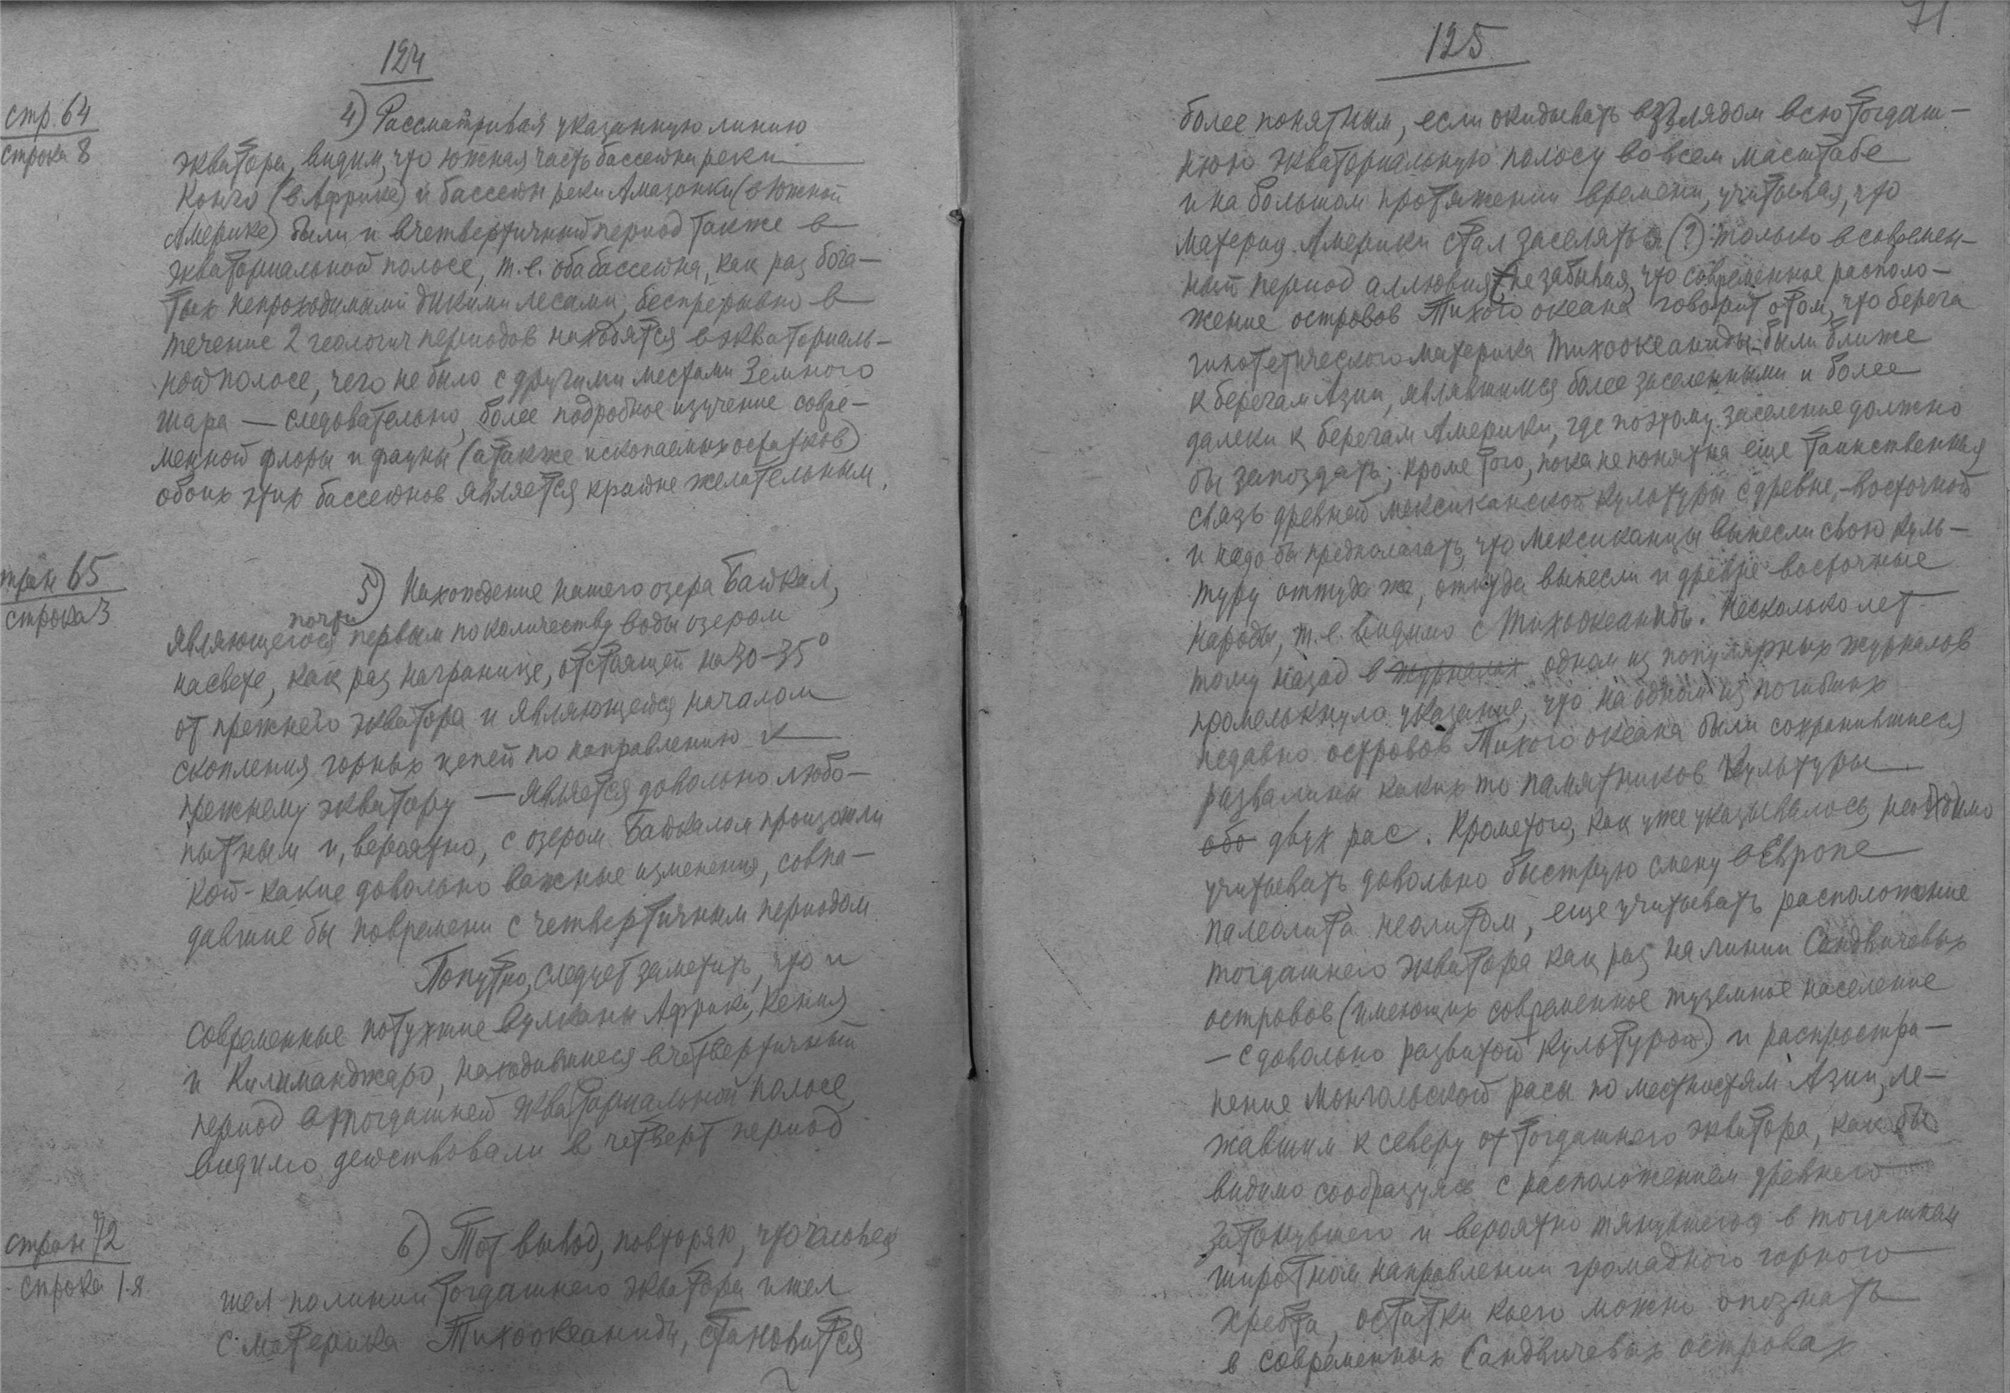 124
стр. 64
строка 8
4) Рассматривая указанную линию
экватора, видим, что южная часть бассейна реки
Конго (в Африке) и бассейн реки Амазонки (в Южной
Америке) были и в четвертичный период также в
экваториальной полосе, т.е. оба бассейна, как раз бога-
тых непроходимыми дикими лесами, беспрерывно в
течение 2 геологич периодов находятся в экваториаль-
ной полосе, чего не было с другими местами Земного
шара — следовательно, более подробное изучение совре-
менной флоры и фауны (а также ископаемых остатков)
обоих этих бассейнов является крайне желательным.
стран 65
строка 3
5) Нахождение нашего озера Байкал,
почти
являющегося первым по количеству воды озером
на свете, как раз на границе, отстоящей на 30-35°
от прежнего экватора и являющейся началом
скопления горных цепей по направлению к
прежнему экватору — является довольно любо-
пытным и, вероятно, с озером Байкалом произошли
кой-какие довольно важные изменения, совпа-
давшие бы по времени с четвертичным периодом.
Попутно, следует заметить, что и
современные потухшие вулканы Африки, Кения
и Килиманджаро, находившиеся в четвертичный
период в тогдашней экваториальной полосе,
видимо действовали в четверт период
стран 72
строка 1-я
6) Тот вывод, повторяю, что человек
шел по линии тогдашнего экватора и шел
с материка Тихоокеаниды, становится
71
125
более понятным, если окидывать взглядом всю тогдаш-
нюю экваториальную полосу во всем масштабе
и на большом протяжении времени, учитывая, что
материк Америки стал заселяться (?) только в современ-
ный период аллювия, не забывая, что современное располо-
жение островов Тихого океана говорит о том, что берега
гипотетического материка Тихоокеаниды были ближе
к берегам Азии, являвшимся более заселенными и более
далеки к берегам Америки, где поэтому заселение должно
бы запоздать; кроме того, пока не понятна еще таинственная
связь древней мексиканской культуры с древне-восточной
и надо бы предполагать, что мексиканцы вынесли свою куль-
туру оттуда же, откуда вынесли и древне-восточные
народы, т.е. видимо с Тихоокеаниды. Несколько лет
тому назад в журналах одном из популярных журналов
промелькнуло указание, что на одном из погибших
недавно островов Тихого океана были сохранившиеся
развалины каких то памятников культуры
обо двух рас. Кроме того, как уже указывалось, необходимо
учитывать довольно быструю смену в Европе
палеолита неолитом, еще учитывать расположение
тогдашнего экватора как раз на линии Сандвичевых
островов (имеющих современное туземное население
— с довольно развитой культурой) и распростра-
нение монгольской расы по местностям Азии, ле-
жавшим к северу от тогдашнего экватора, как бы
видимо сообразуясь с расположением древнего
затонувшего и вероятно тянувшегося в тогдашнем
широтном направлении громадного горного
хребта, остатки коего можно опознать
в современных Сандвичевых островах